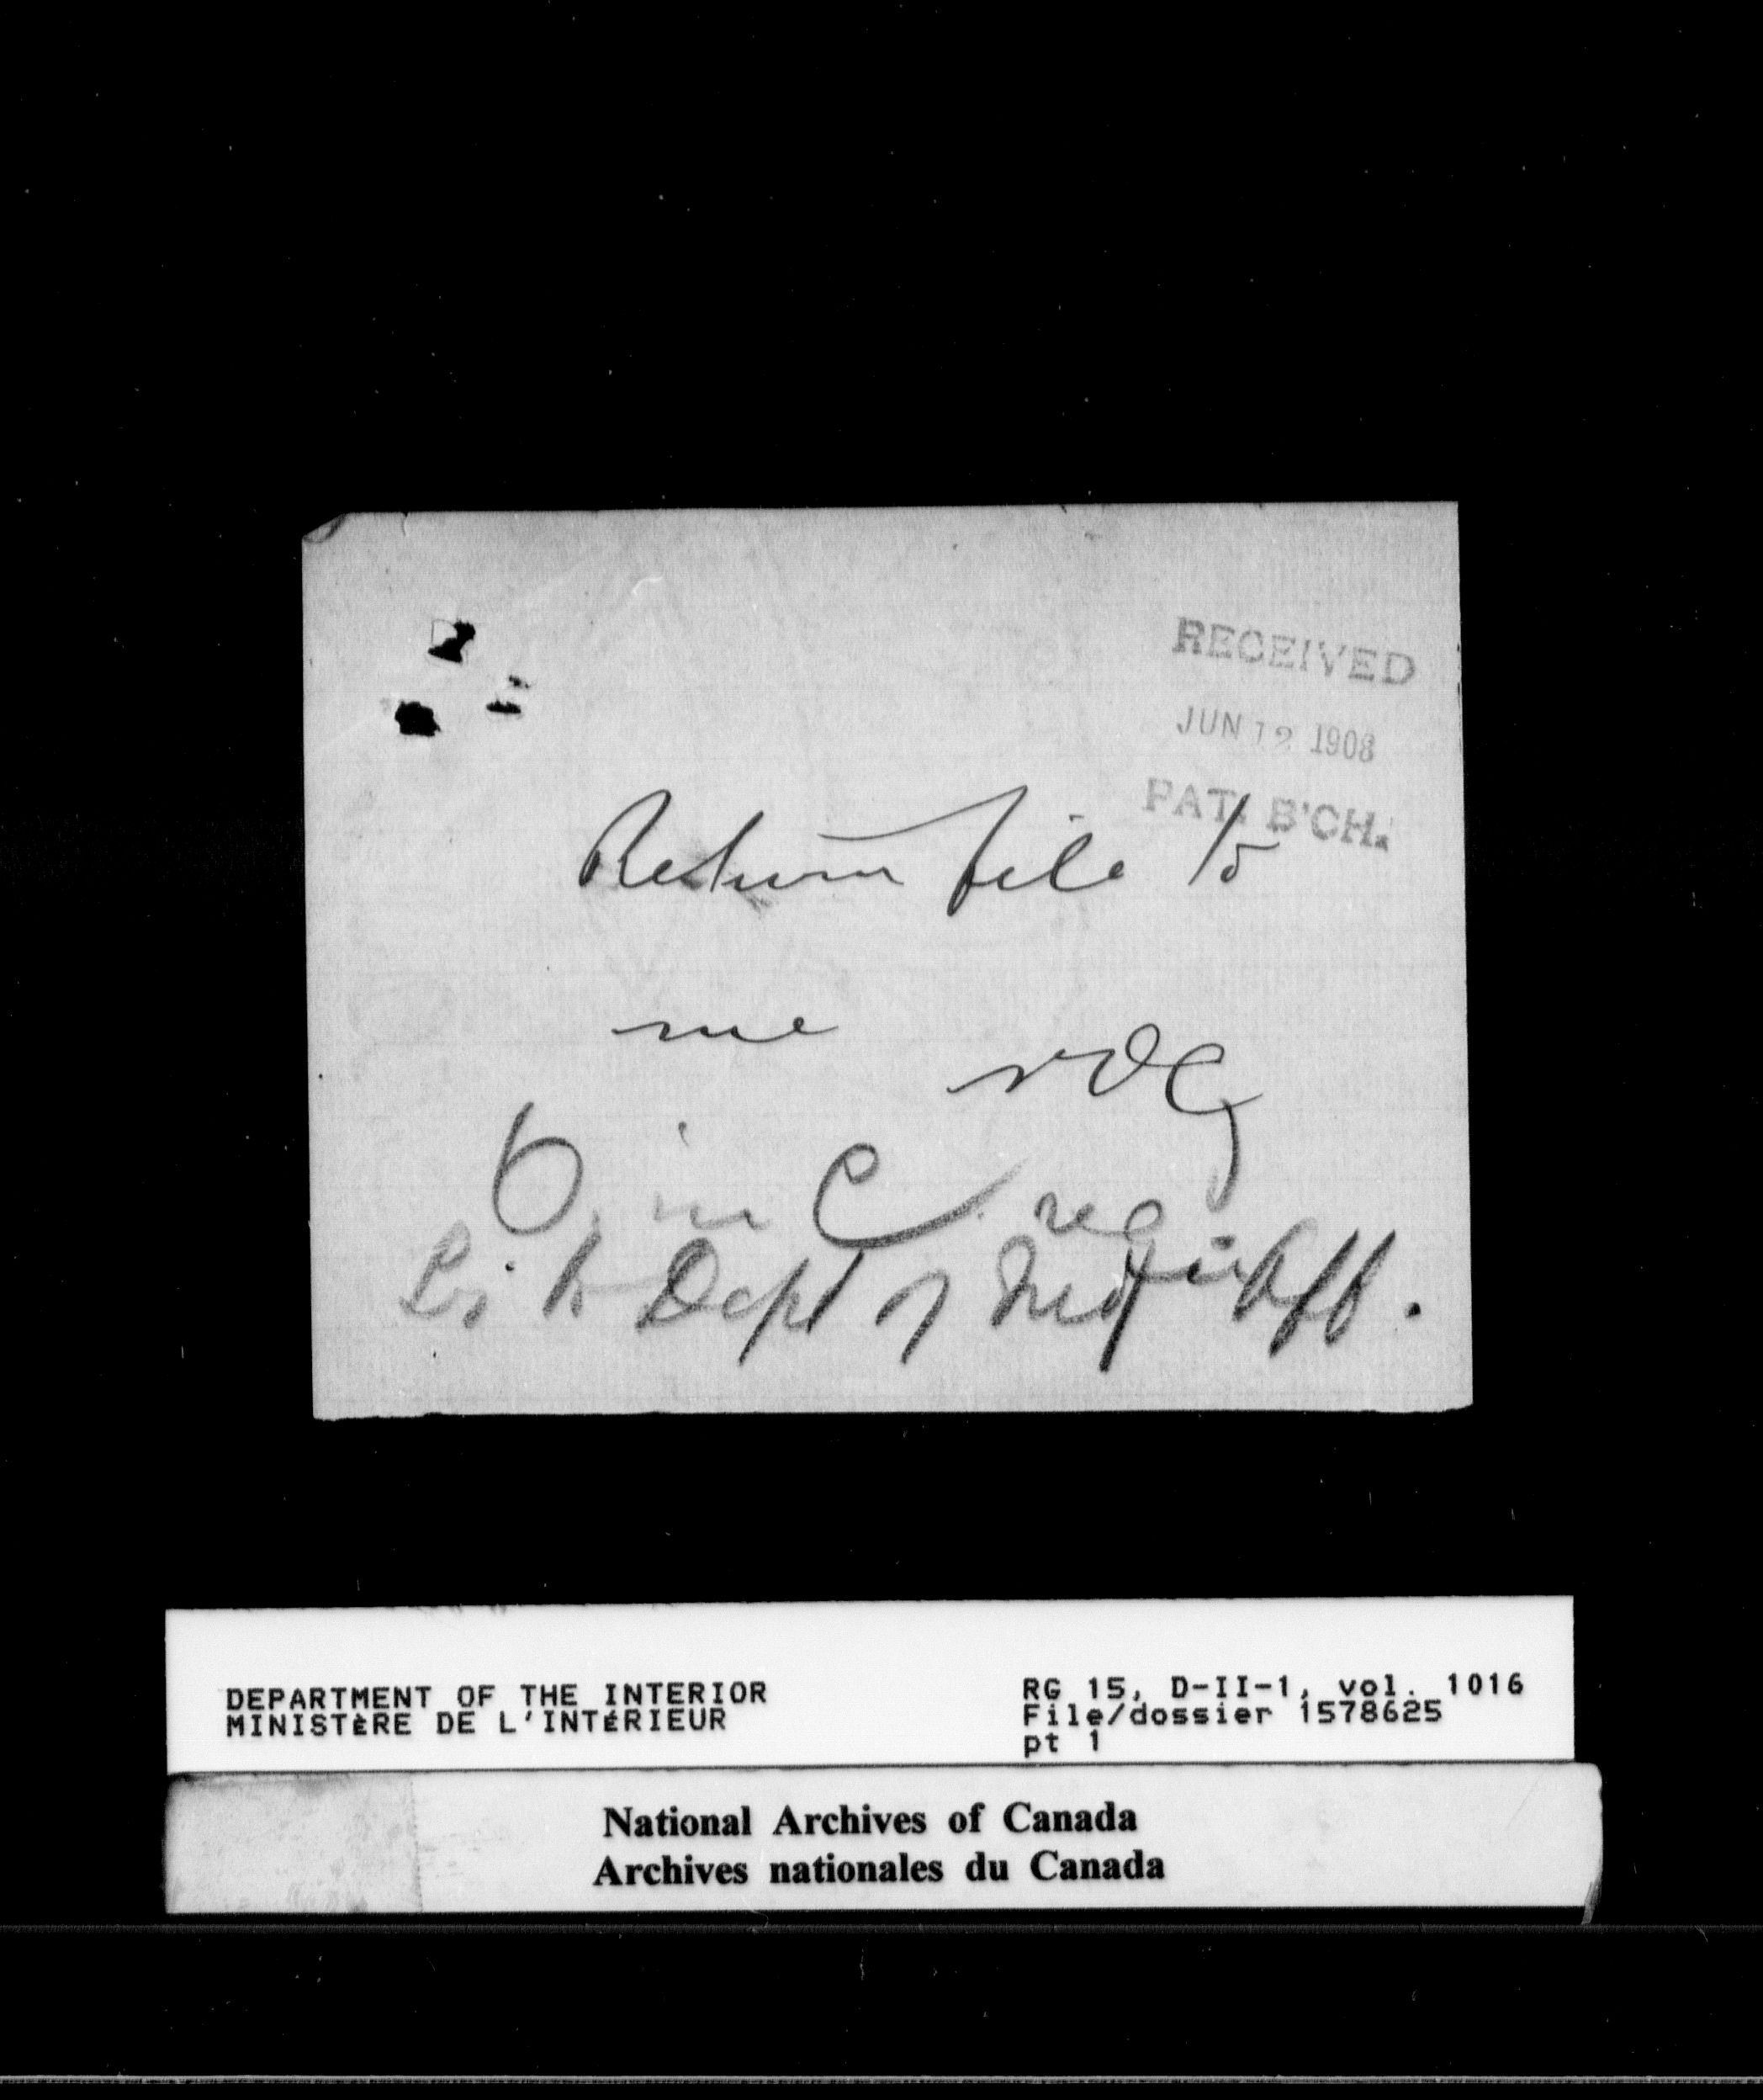 RECEIVED
JUN 12 1908
PAT. B'CH.
Return file to
me
O. in C. re
to Dept of Aff.
DEPARTMENT OF THE INTERIOR
MINISTÈRE DE L'INTÉRIEUR
RG 15, D-II-1, vol. 1016
File/dossier 1578625
pt 1
National Archives of Canada
Archives nationales du Canada